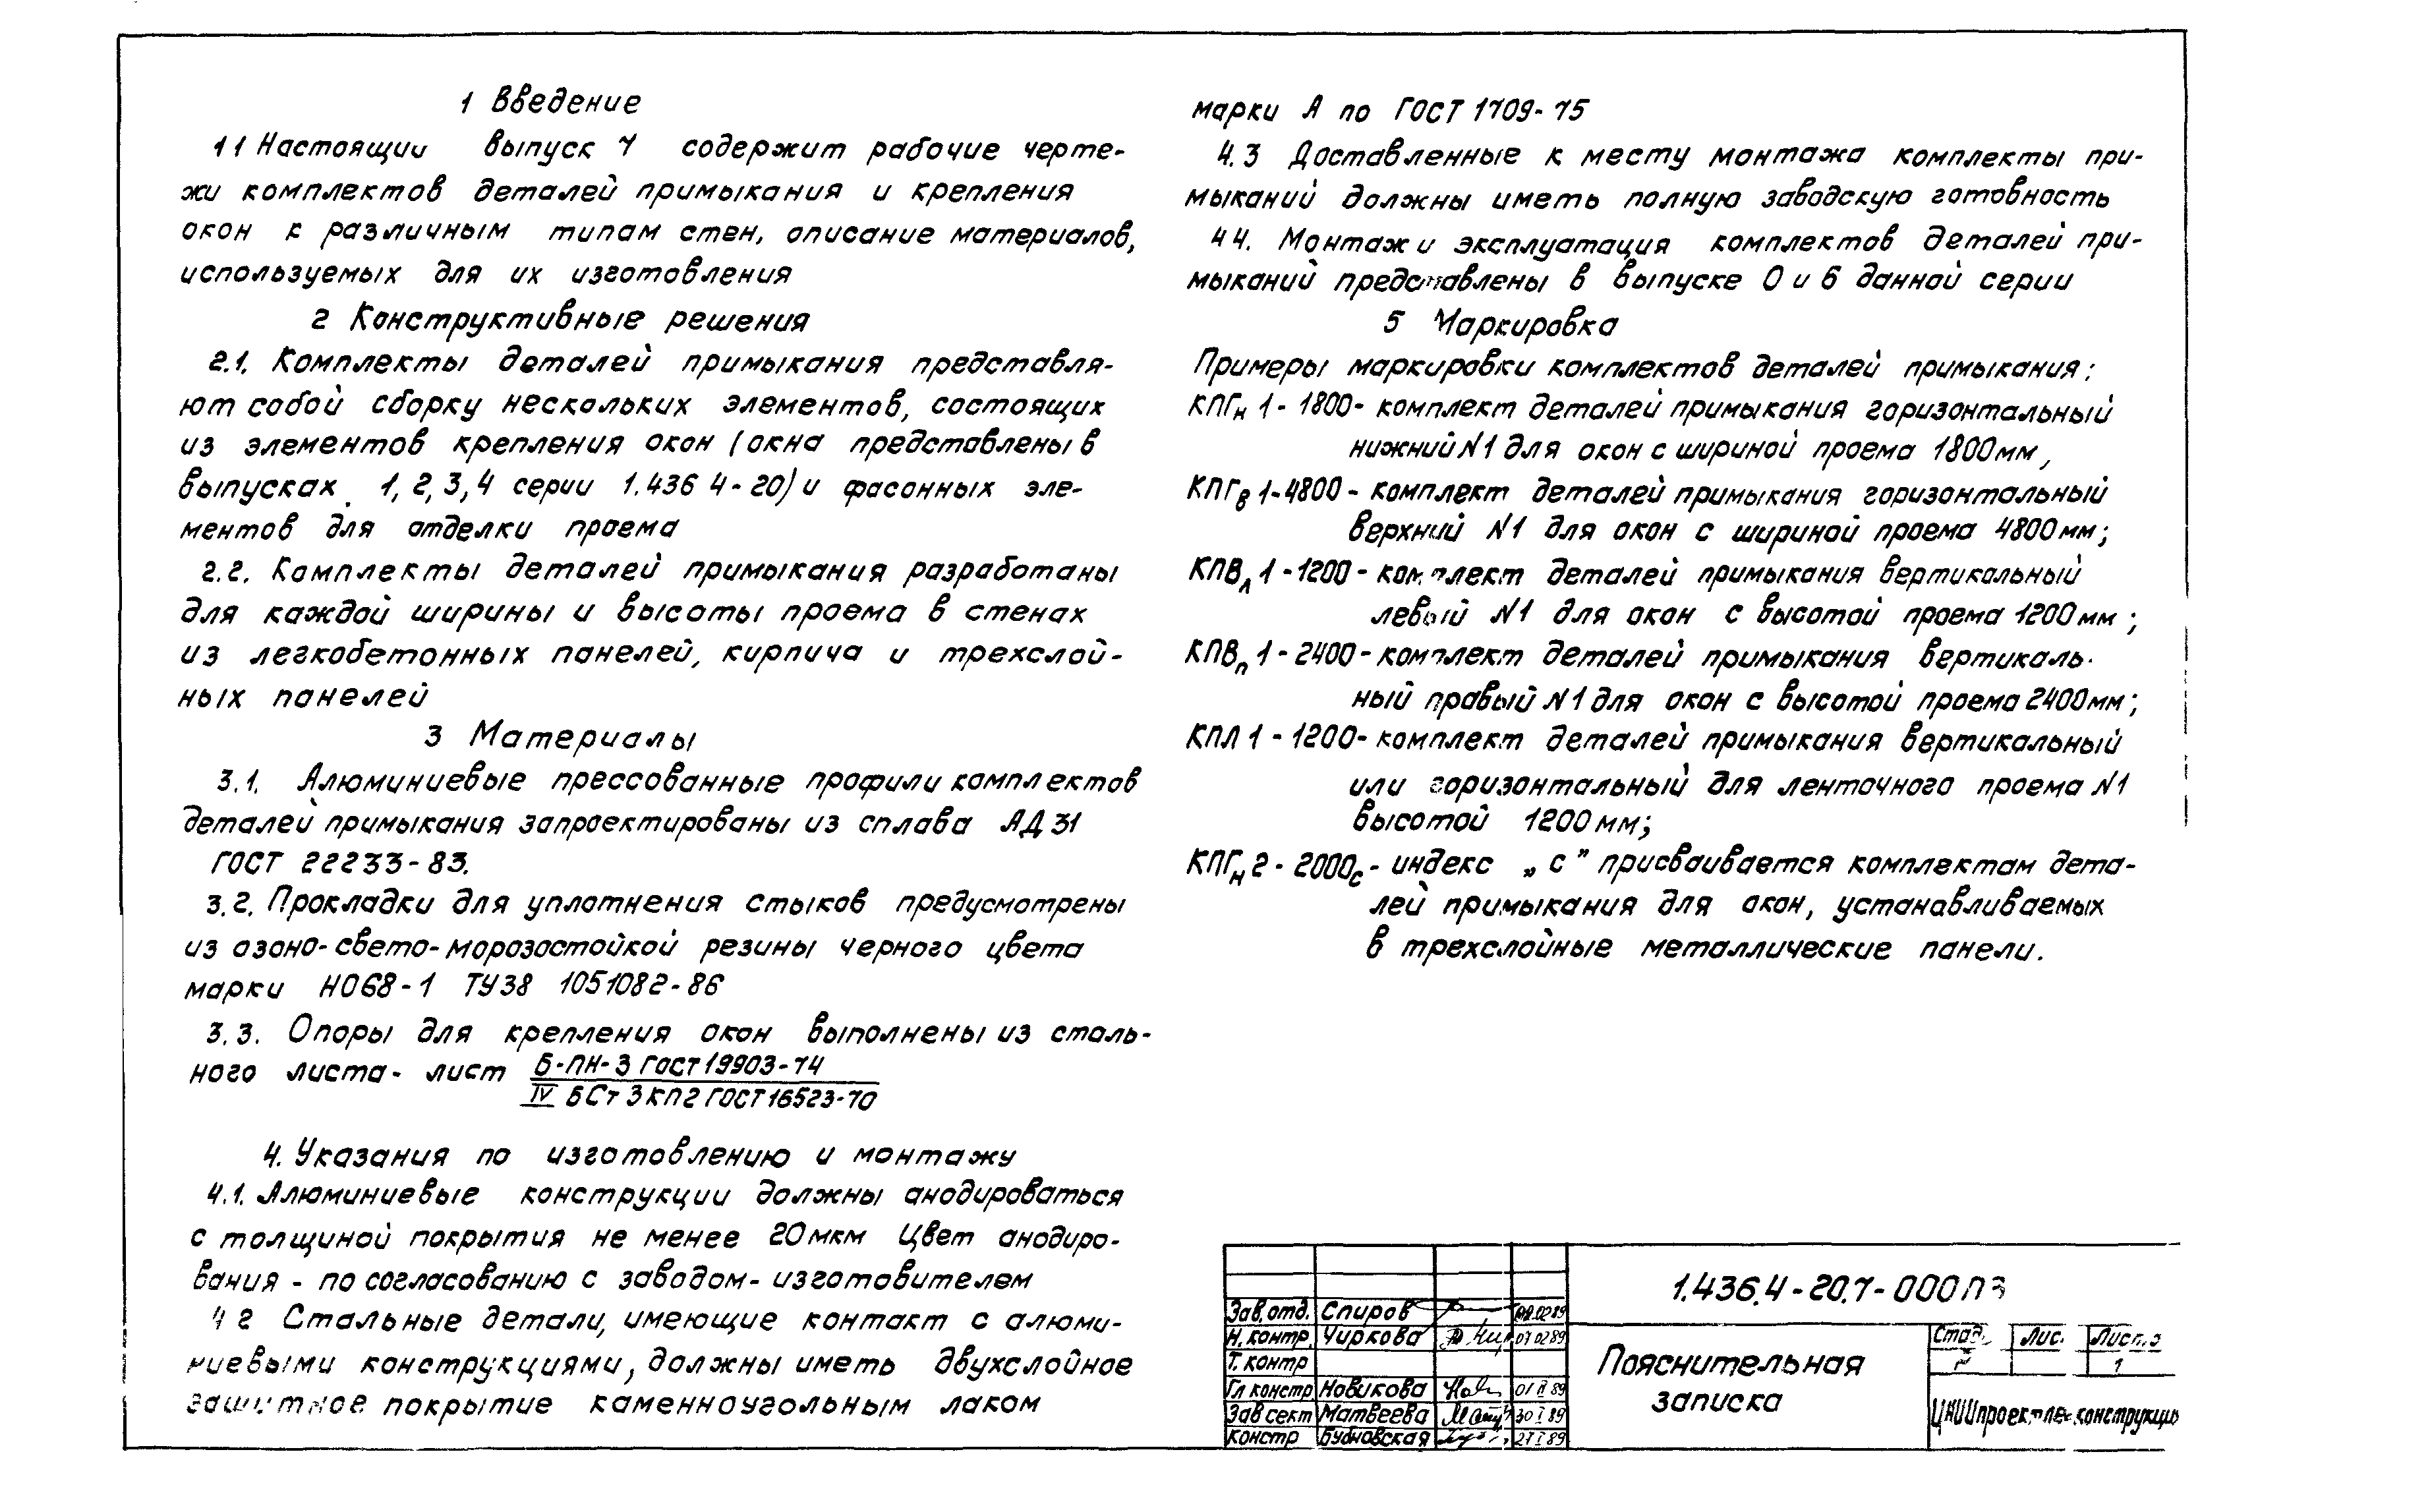 1 Введение
1 1 Настоящии выпуск 7 содержит рабочие черте-
жи комплектов деталей примыкания и крепления
окон к различным типам стен, описание материалов,
используемых для их изготовления
2 Конструктивные решения
2.1. Комплекты деталей примыкания представля-
ют собой сборку нескольких элементов, состоящих
из элементов крепления окон (окна представлены в
выпусках 1, 2, 3, 4 серии 1.436 4-20) и фасонных эле-
ментов для отделки проема
2.2. Комплекты деталей примыкания разработаны
для каждой ширины и высоты проема в стенах
из легкобетонных панелей, кирпича и трехслой-
ных панелей
3 Материалы
3.1. Алюминиевые прессованные профили комплектов
деталей примыкания запроектированы из сплава АД 31
ГОСТ 22233-83.
3.2. Прокладки для уплотнения стыков предусмотрены
из озоно-свето-морозостойкой резины черного цвета
марки НО68-1 ТУ38 1051082-86
3.3. Опоры для крепления окон выполнены из сталь-
ного листа- лист Б-ПН-3 ГОСТ 19903-74
IV БСт 3КП2 ГОСТ 16523-70
4. Указания по изготовлению и монтажу
4.1. Алюминиевые конструкции должны анодироваться
с толщиной покрытия не менее 20 мкм Цвет анодиро-
вания - по согласованию с заводом-изготовителем
4 2 Стальные детали, имеющие контакт с алюми-
ниевыми конструкциями, должны иметь двухслойное
защитное покрытие каменноугольным лаком
марки А по ГОСТ 1709-75
4.3 Доставленные к месту монтажа комплекты при-
мыканий должны иметь полную заводскую готовность
4 4. Монтаж и эксплуатация комплектов деталей при-
мыканий представлены в выпуске 0 и 6 данной серии
5 Маркировка
Примеры маркировки комплектов деталей примыкания:
КПГн 1-1800- комплект деталей примыкания горизонтальный
нижний N1 для окон с шириной проема 1800мм,
КПГв 1-4800- комплект деталей примыкания горизонтальный
верхний N1 для окон с шириной проема 4800мм;
КПВл 1-1200- комплект деталей примыкания вертикальный
левый N1 для окон с высотой проема 1200мм;
КПВп 1-2400- комплект деталей примыкания вертикаль-
ный правый N1 для окон с высотой проема 2400мм;
КПЛ 1-1200- комплект деталей примыкания вертикальный
или горизонтальный для ленточного проема N1
высотой 1200мм;
КПГн 2-2000с- индекс „с" присваивается комплектам дета-
лей примыкания для окон, устанавливаемых
в трехслойные металлические панели.
1.436.4-20.7-000ПЗ
Зав.отд. Спиров 02.89
Н.контр. Чиркова 07 02 89
Т.контр
Гл констр Новикова 01 II 89
Зав сект Матвеева 30 I 89
Констр Бубновская 27 I 89
Пояснительная
записка
Стад. Лис.
1